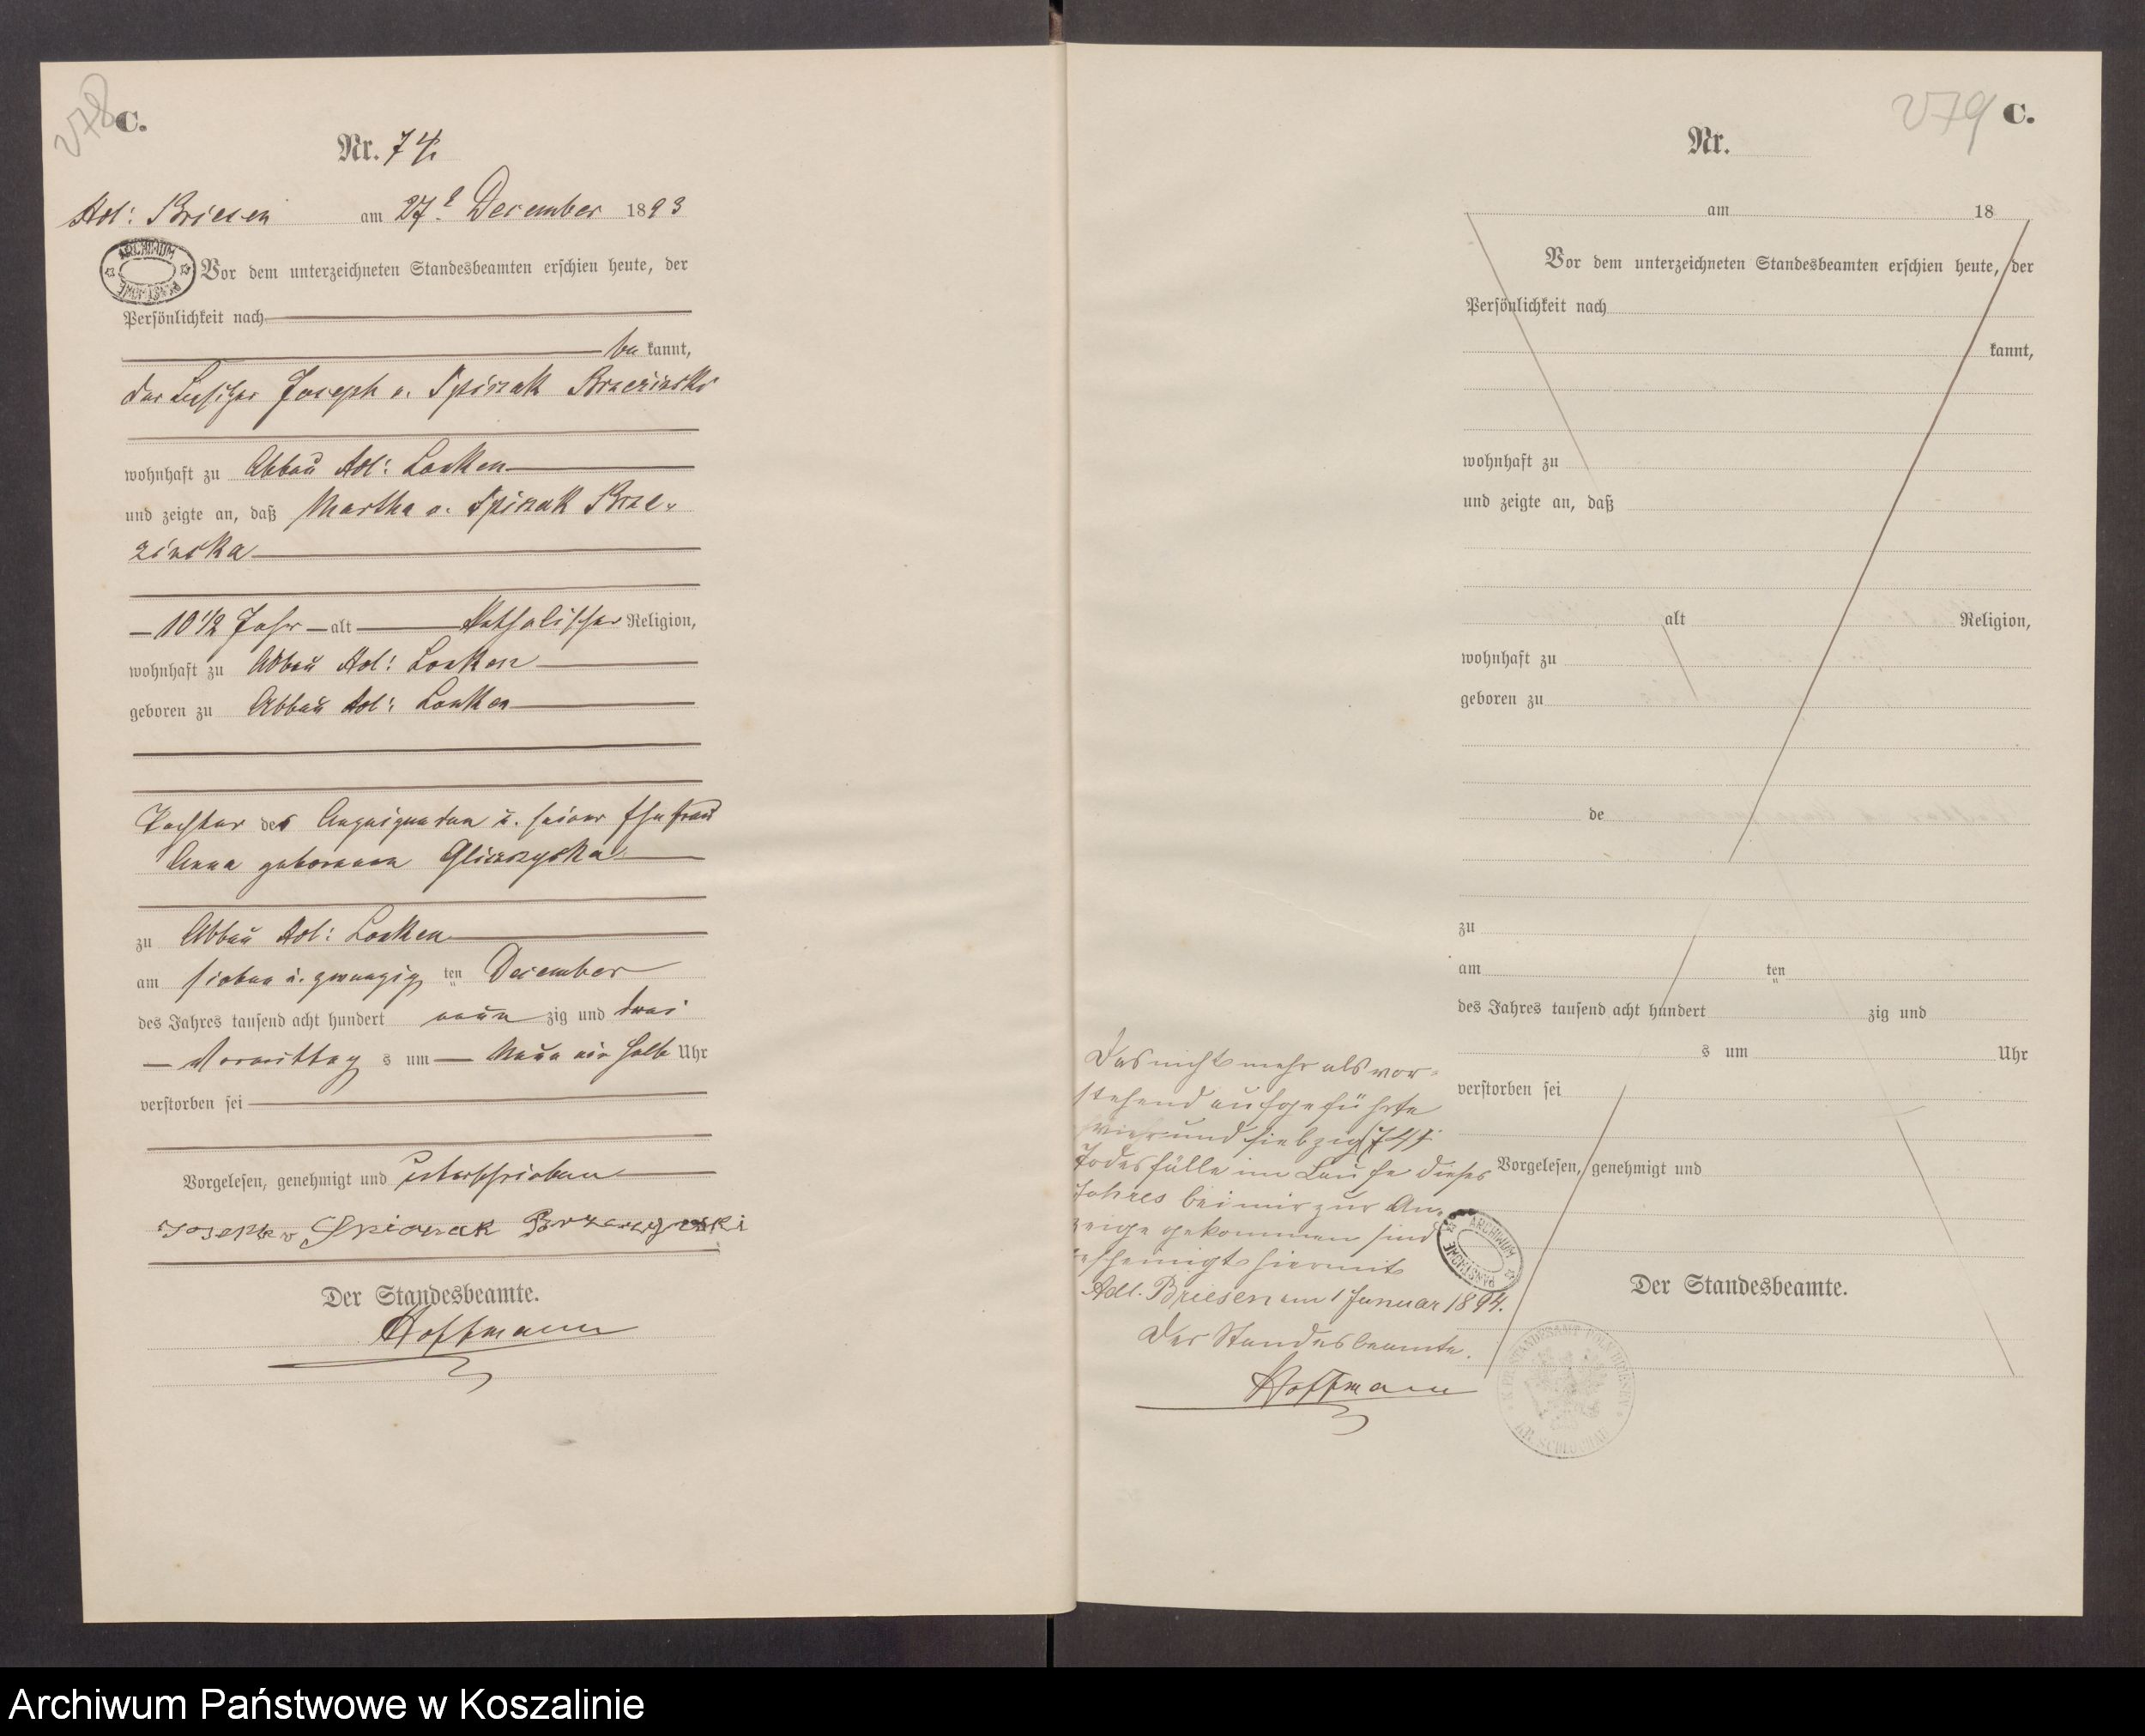 278 C.
Nr. 74.
Adl: Briesen am 27t December 1893
ARCHIWUM PAŃSTWOWE
Vor dem unterzeichneten Standesbeamten erschien heute, der
Persönlichkeit nach
be kannt,
der Besitzer Joseph v. Spiczak Brzezinski
wohnhaft zu Abbau Adl: Lonken
und zeigte an, daß Martha v. Spiczak Brze-
zinska
10 1/2 Jahr alt Katholischer Religion,
wohnhaft zu Abbau Adl: Lonken
geboren zu Abbau Adl: Lonken
Tochter des Anzeigenden u. seiner Ehefrau
Anna geborenen
zu Abbau Adl: Lonken
am sieben u. zwanzig ten December
des Jahres tausend acht hundert neun zig und drei
Vormittag s um Neun ein halb Uhr
verstorben sei
Vorgelesen, genehmigt und unterschrieben
Joseph v
Der Standesbeamte.
Hoffmann
279 C.
Nr.
am 18
Vor dem unterzeichneten Standesbeamten erschien heute, der
Persönlichkeit nach
kannt,
wohnhaft zu
und zeigte an, daß
alt Religion,
wohnhaft zu
geboren zu
de
zu
am ten
des Jahres tausend acht hundert zig und
s um Uhr
verstorben sei
Vorgelesen, genehmigt und
Der Standesbeamte.
Das nicht mehr als vor-
stehend aufgeführte
vier und siebzig (74)
Todesfälle im Laufe dieses
Jahres bei mir zur An-
zeige gekommen sind
bescheinigt hiermit
Adl. Briesen am 1 Januar 1894.
Der Standesbeamte.
Hoffmann
ARCHIWUM PAŃSTWOWE
KR. SCHLOCHAU
Archiwum Państwowe w Koszalinie